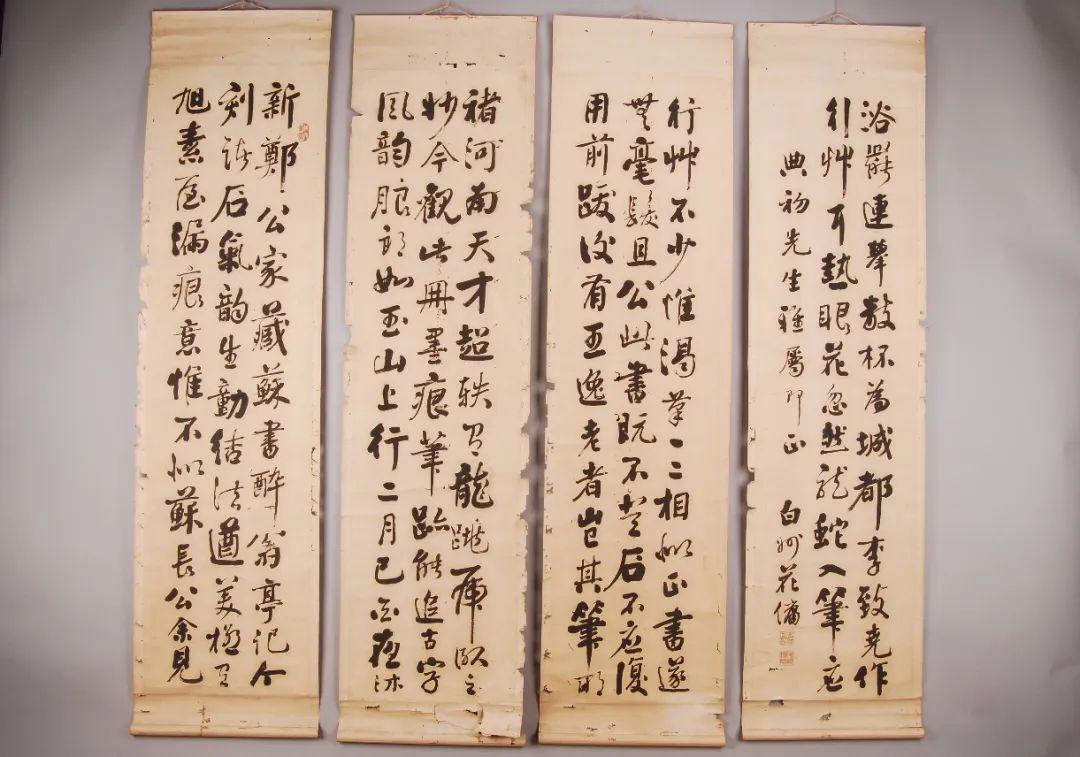 新鄭公家藏蘇書醉翁亭記今
刻諸石氣韻生動結法遒美極有
旭素屋漏痕意惟不似蘇長公余見
褚河南天才超軼有龍跳虎臥之
妙今觀此冊墨痕筆跡能追古字
風韻朗如玉山上行二月己夜沐
行艸不少惟渴筆一二相似正書遂
無毫髮且公此書既不登石不應復
用前跋後有五逸老者豈其筆耶
浴罷連舉數杯為城都李致堯作
行艸耳熱眼花忽然龍蛇入筆應
典初先生雅屬即正 白花傭